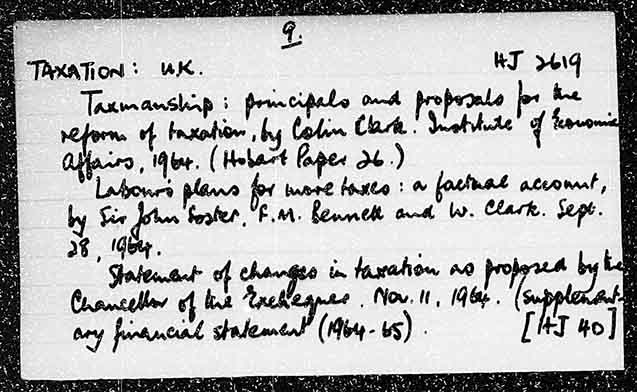 9.
TAXATION: U.K. HJ 2619
Taxmanship: principals and proposals for the
reform of taxation, by Colin Clark. Institute of Economic
Affairs, 1964. (Hobart Paper 26.)
Labour's plans for more taxes: a factual account,
by Sir John Foster, F.M. Bennett and W. Clark. Sept.
28, 1964.
Statement of changes in taxation as proposed by the
Chancellor of the Exchequer. Nov. 11, 1964. (Supplement-
ary financial statement (1964-65). [HJ 40]